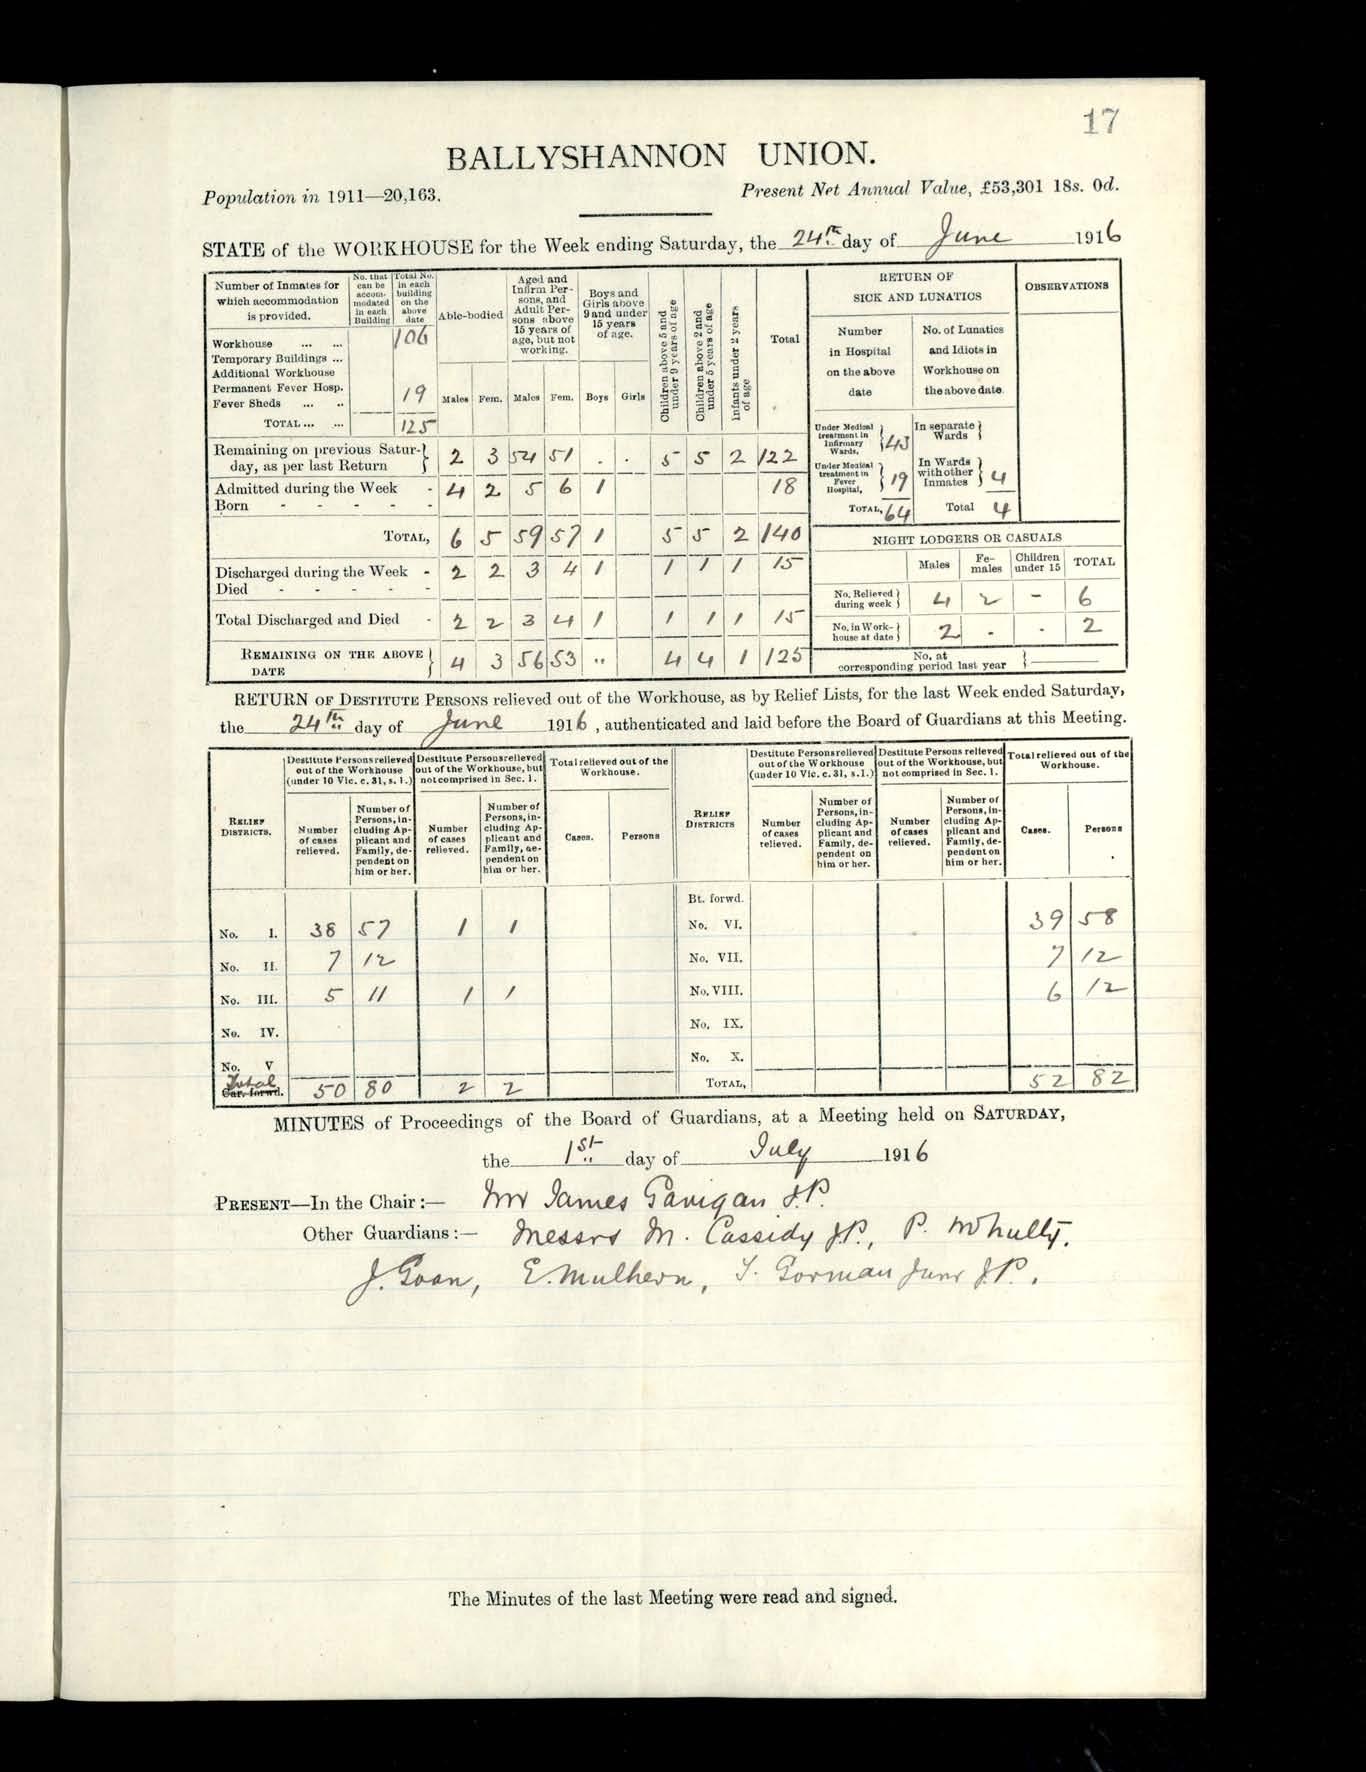 17
BALLYSHANNON UNION.
Population in 1911—20,163. Present Net Annual Value, £53,301 18s. 0d.
STATE of the WORKHOUSE for the Week ending Saturday, the 24th day of June 1916
Number of Inmates for which accommodation is provided. No. that can be accom- modated in each Building Total No. in each building on the above date Able-bodied Aged and Infirm Per- sons, and Adult Per- sons above 15 years of age, but not working. Boys and Girls above 9 and under 15 years of age. Children above 5 and under 9 years of age Children above 2 and under 5 years of age Infants under 2 years of age Total
Males Fem. Males Fem. Boys Girls
Workhouse ... ... 106
Temporary Buildings ...
Additional Workhouse
Permanent Fever Hosp. 19
Fever Sheds ... ..
TOTAL ... ... 125
Remaining on previous Satur- day, as per last Return 2 3 54 51 . . 5 5 2 122
Admitted during the Week - 4 2 5 6 1 18
Born - - - - -
TOTAL, 6 5 59 57 1 5 5 2 140
Discharged during the Week - 2 2 3 4 1 1 1 1 15
Died - - - - -
Total Discharged and Died - 2 2 3 4 1 1 1 1 15
REMAINING ON THE ABOVE DATE 4 3 56 53 " 4 4 1 125
RETURN OF SICK AND LUNATICS
OBSERVATIONS
Number in Hospital on the above date
No. of Lunatics and Idiots in Workhouse on the above date.
Under Medical treatment in Infirmary Wards, 45 In separate Wards
Under Medical treatment in Fever Hospital, 19 In Wards with other Inmates 4
TOTAL, 64 Total 4
NIGHT LODGERS OR CASUALS
Males Fe- males Children under 15 TOTAL
No. Relieved during week 4 2 - 6
No. in Work- house at date 2 . . 2
No. at corresponding period last year
RETURN OF DESTITUTE PERSONS relieved out of the Workhouse, as by Relief Lists, for the last Week ended Saturday,
the 24th day of June 1916, authenticated and laid before the Board of Guardians at this Meeting.
RELIEF DISTRICTS. Destitute Persons relieved out of the Workhouse (under 10 Vic. c. 31, s. 1.) Destitute Persons relieved out of the Workhouse, but not comprised in Sec. 1. Total relieved out of the Workhouse.
Number of cases relieved. Number of Persons, in- cluding Ap- plicant and Family, de- pendent on him or her. Number of cases relieved. Number of Persons, in- cluding Ap- plicant and Family, de- pendent on him or her. Cases. Persons
No. I. 38 57 1 1
No. II. 7 12
No. III. 5 11 1 1
No. IV.
No. V
Total
Car. forwd. 50 80 2 2
RELIEF DISTRICTS Destitute Persons relieved out of the Workhouse (under 10 Vic. c. 31, s.1.) Destitute Persons relieved out of the Workhouse, but not comprised in Sec. 1. Total relieved out of the Workhouse.
Number of cases relieved. Number of Persons, in- cluding Ap- plicant and Family, de- pendent on him or her. Number of cases relieved. Number of Persons, in- cluding Ap- plicant and Family, de- pendent on him or her. Cases. Persons
Bt. forwd.
No. VI. 39 58
No. VII. 7 12
No. VIII. 6 12
No. IX.
No. X.
TOTAL, 52 82
MINUTES of Proceedings of the Board of Guardians, at a Meeting held on SATURDAY,
the 1st day of July 1916
PRESENT—In the Chair :— Mr James Gavigan J.P.
Other Guardians :— Messrs M. Cassidy J.P., P. McNulty.
J. Goan, E. Mulhern, T. Gorman Junr J.P.,
The Minutes of the last Meeting were read and signed.